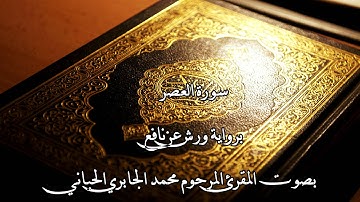 سورة العصر
برواية ورش عن نافع
بصوت المقرئ المرحوم محمد الجابري الحياني